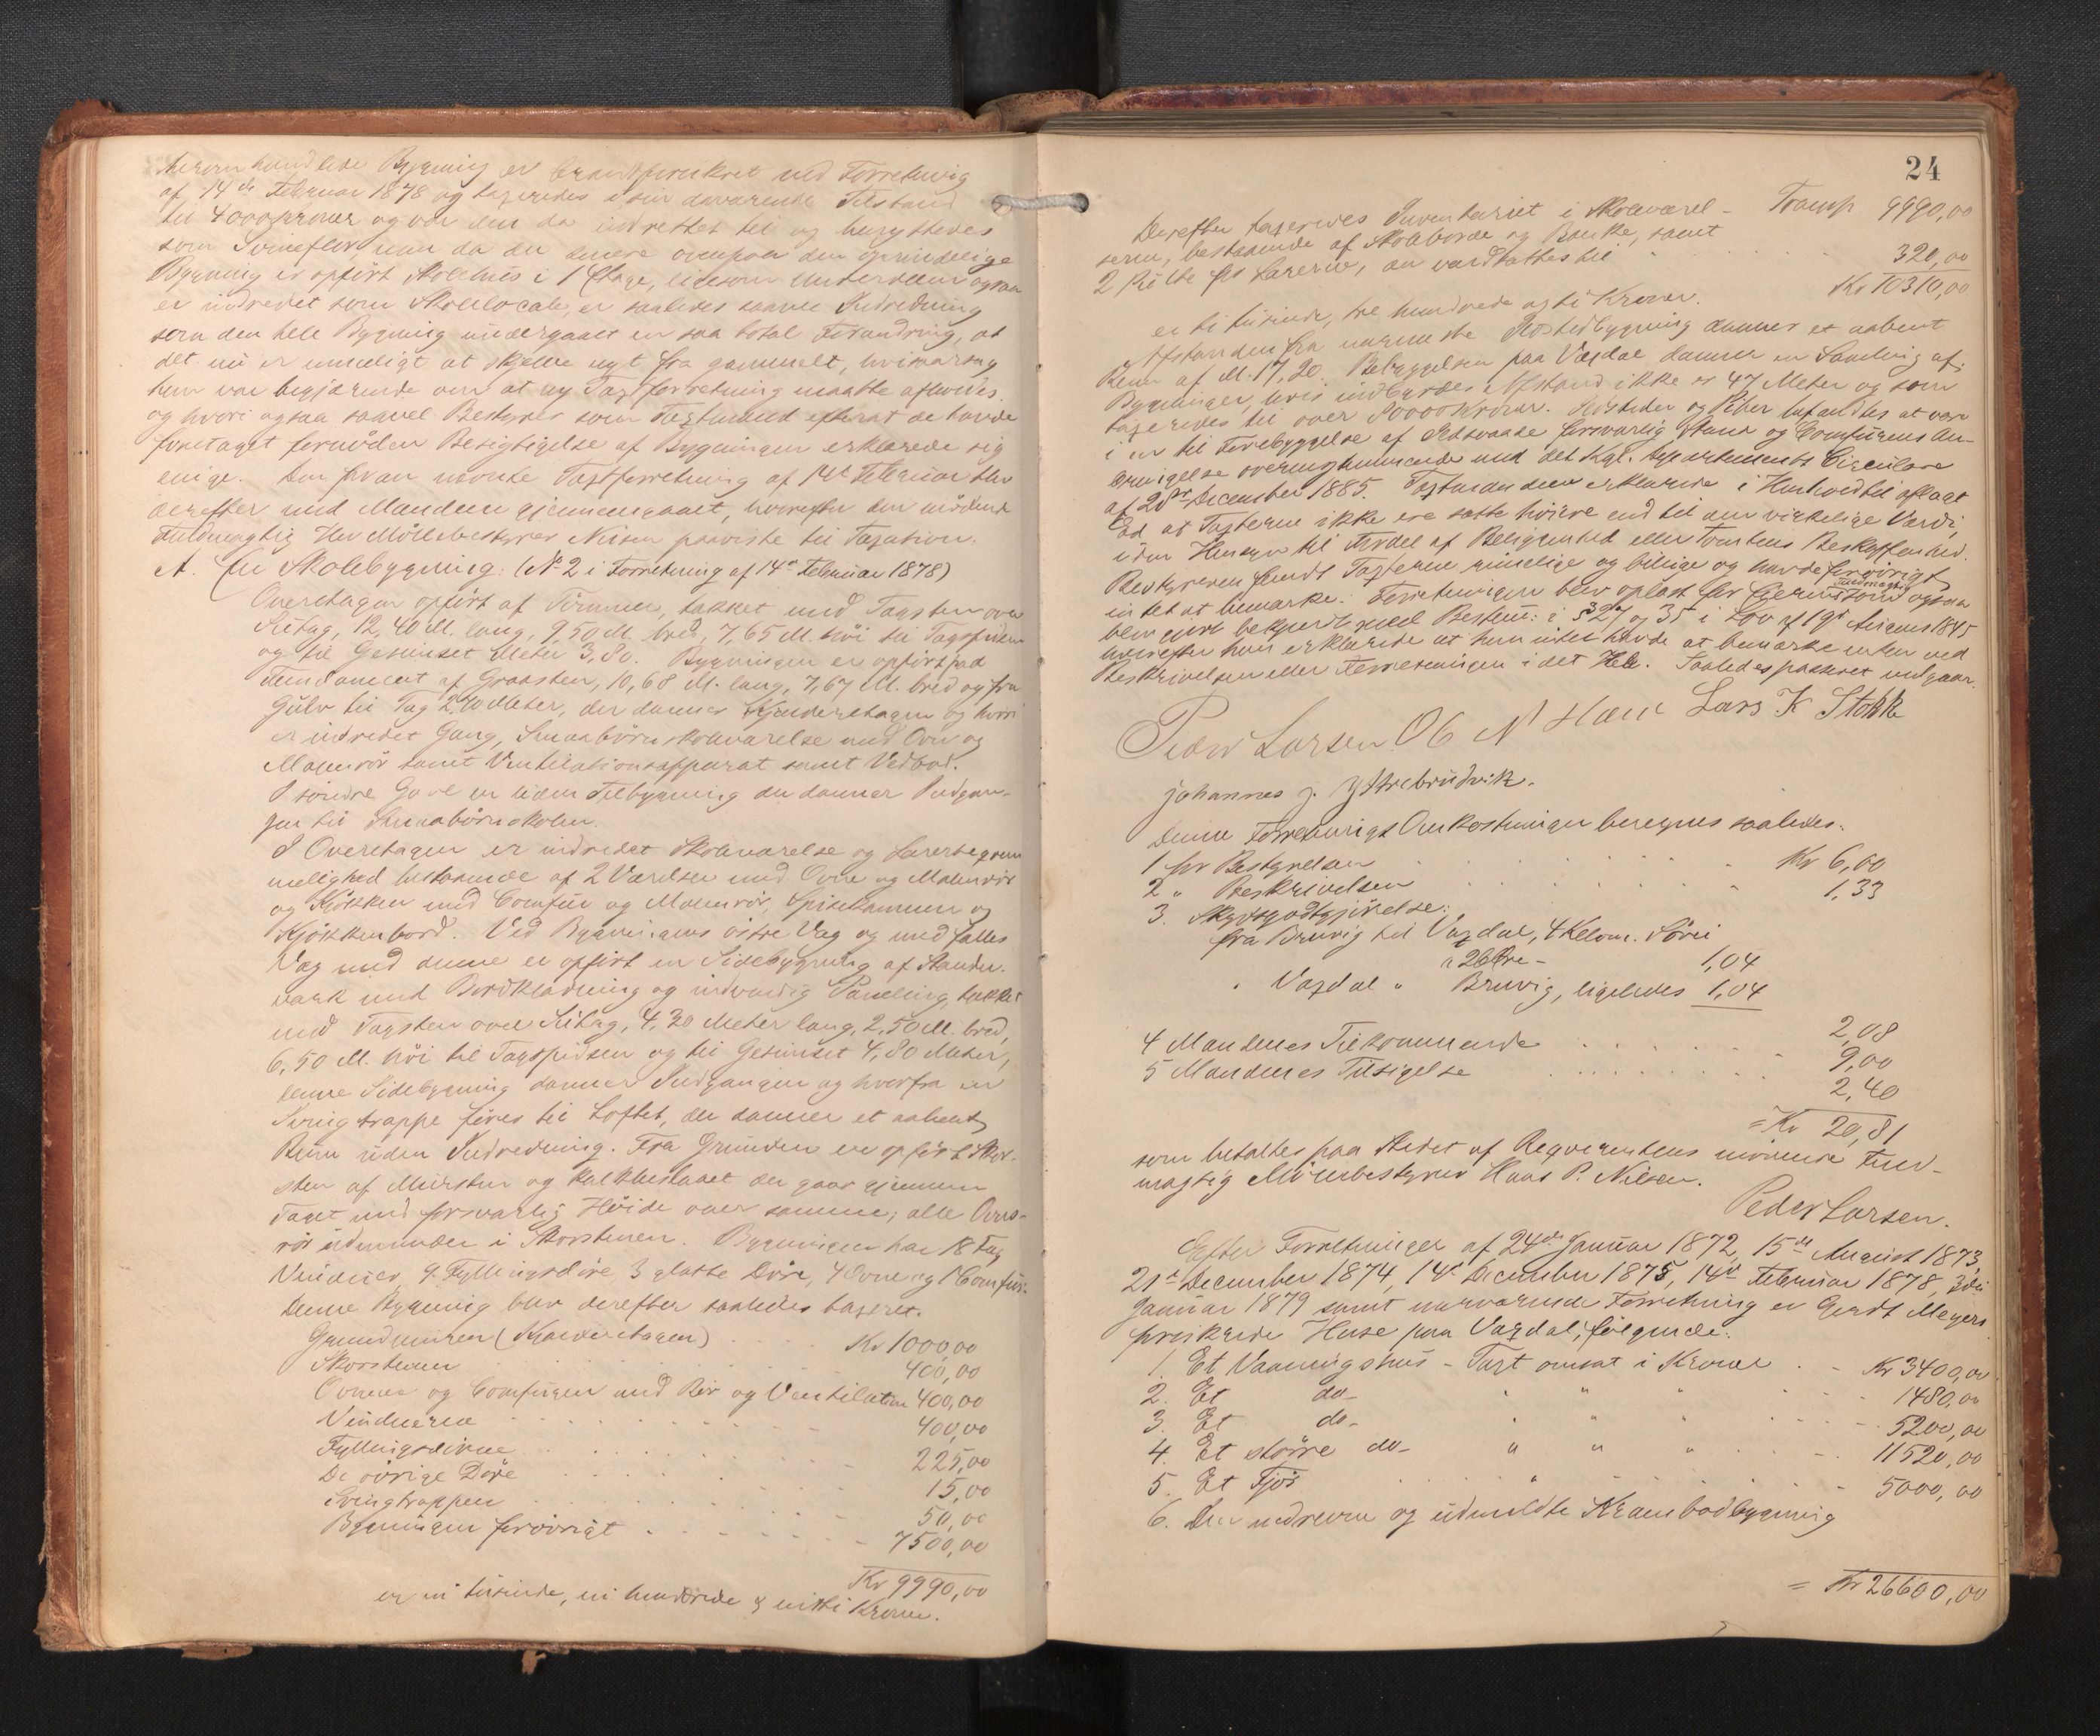 heromhandlede Bygning er brandforsikret ved Forretning
af 14de Februar 1878 og taxeredes i sin daværende Tilstand
til 4000 Kroner og var den da indrettet til og benyttedes
som Svinefjøs, men da der senere ovenpaa den oprindelige
Bygning er opført Skolehus i 1 Etage, ligesom Underdelen ogsaa
er indredet som Skolelocale, er saaledes saavel Indredning
som den hele Bygning undergaaet en saa total Forandring, at
det nu er umuligt at skjelne nyt fra gammelt, hvorfor
han var begjærende om at ny Taxtforretning maatte afholdes,
og hvori ogsaa saavel Bestyrer som Taxtmænd efterat de havde
foretaget fornøden Besigtigelse af Bygningen erklærede sig
enige. Den foran nævnte Taxtforretning af 14de Februar blev
derefter med Mændene gjennemgaaet, hvorefter den mødende
Fuldmægtig Herr Møllebestyrer Nilsen paaviste til Taxation:
A. En Skolebygning: (No 2 i Forretning af 14de Februar 1878)
Overetagen opført af Tømmer, tækket med Tagsten over
Sutag, 12,40 M. lang, 9,50 M. bred, 7,65 M. høi til Tagspidsen
og til Gesimset Meter 3,80. Bygningen er opført paa
Fundament af Graasten, 10,68 M. lang, 7,67 M. bred og fra
Gulv til Tag 2,40 Meter, der danner Kjælderetagen og hvori
er indredet Gang, Smaabørnsskoleværelse med Ovn og
Magasinrør samt Ventilationsapparat samt Vedbod.
I søndre Gavl en liden Tilbygning der danner Indgan-
gen til Smaabørnsskolen.
I Overetagen er indredet Skoleværelse og Lærerbeqvem
melighed bestaaende af 2 Værelser med Ovne og
og Kjøkken med Comfur og Spisekammer og
Kjøkkenbord. Ved Bygningens østre Væg og med fælles
Væg med denne er opført en Sidebygning af Stænder-
værk med Bordklædning og indvendig Paneling, tækket
med Tagsten over Sutag, 4,30 Meter lang, 2,50 M. bred,
6,50 M. høi til Tagspidsen og til Gesimset 4,80 Meter,
denne Sidebygning danner Indgangen og hvorfra en
Svingtrappe føres til Loftet, der danner et aabent
Rum uden Indredning. Fra Grunden er opført Skor-
sten af Mursten og kalkbeslaaet der gaar gjennem
Taget med forsvarlig Høide over samme; alle Ovns-
rør udmunder i Skorstenen. Bygningen har 18 Fag
Vinduer, 9 Fyllingsdøre, 3 glatte Døre, 4 Ovne og 1 Comfur.
Denne Bygning blev derefter saaledes taxeret.
Grundmuren (Kjælderetagen) . . Kr 1000,00
Skorstenen . . . 400,00
Ovnene og Comfuren med Rør og Ventilation 400,00
Vinduerne . . . 400,00
Fyllingsdørene . . . 225,00
De øvrige Døre . . . 15,00
Svingtrappen . . . 50,00
Bygningen forøvrigt . . . 7500,00
Kr 9990,00
er ni tusinde, ni hundrede og nitti Kroner.
24
Transp 9990,00
Derefter taxeredes Inventariet i Skoleværel-
serne, bestaaende af Skoleborde og Bænke, samt
2 Pulte for Lærerne, der værdsattes til . . . 320,00
Kr 10310,00
er ti tusinde, tre hundrede og ti Kroner.
Afstanden fra nærmeste Ildstedbygning danner et aabent
Rum af M. 17,20. Bebyggelsen paa Vaxdal danner en Samling af
Bygninger, hvis indbyrdes Afstand ikke er 47 Meter og som
taxeredes til over 80000 Kroner. Ildsteder og Piber befandtes at være
i en til Forebyggelse af Ildsvaade forsvarlig Stand og Comfurens An-
bringelse overensstemmende med det Kgl. Departements Circulære
af 20de December 1885. Taxtmændene erklærede i Henhold til aflagt
Ed at Taxterne ikke ere satte høiere end til den virkelige Værdi,
uden Hensyn til Fordel af Beliggenhed eller Tomtens Beskaffenhed.
Bestyreren fandt Taxterne rimelige og billige og havde forøvrigt
intet at bemærke. Forretningen blev oplæst for Eierens Fuldmægtig som ogsaa
blev gjort bekjendt med Bestem: i § 27 og 35 i Lov af 19de August 1845
hvorefter han erklærede at han intet havde at bemærke enten ved
Beskrivelsen eller Forretningen i det Hele. Saaledes passeret vedgaar.
Peder Larsen O6 N Hane Lars K Stokke
Johannes J. Ystrebrudvik.
Denne Forretnings Omkostninger beregnes saaledes:
1 for Bestyrelsen . . . Kr 6,00
2 " Beskrivelsen . . . 1,33
3. Skydsgodtgjørelse:
fra Bruvig til Vaxdal, 4 Kelom. Søvei
a 26 Øre - 1,04
" Vaxdal " Bruvig, ligeledes 1,04
2,08
4 Mændenes Tilkommende . . . 9,00
5 Mændenes Tilsigelse . . . 2,40
= Kr 20,81
som betaltes paa Stedet af Reqvirentens mødende Fuld-
mægtig Møllebestyrer Hans P. Nilsen.
Peder Larsen.
Efter Forretninger af 24de Januar 1872, 15de August 1873,
21de December 1874, 14de December 1875, 14de Februar 1878, 3die
Januar 1879 samt nærværende Forretning er Gerdt Meyers
forsikrede Huse paa Vaxdal, følgende:
1. Et Vaaningshus - Taxt omsat i Kroner . - Kr 3400,00
2. Et do- " " " . . . 1480,00
3. Et do- " " " . . . 5200,00
4. Et større do- " " " . . . 11520,00
5. Et Fjøs . . . " . . . 5000,00
6. Den nedrevne og udmeldte Krambodbygning
= Kr 26600,00